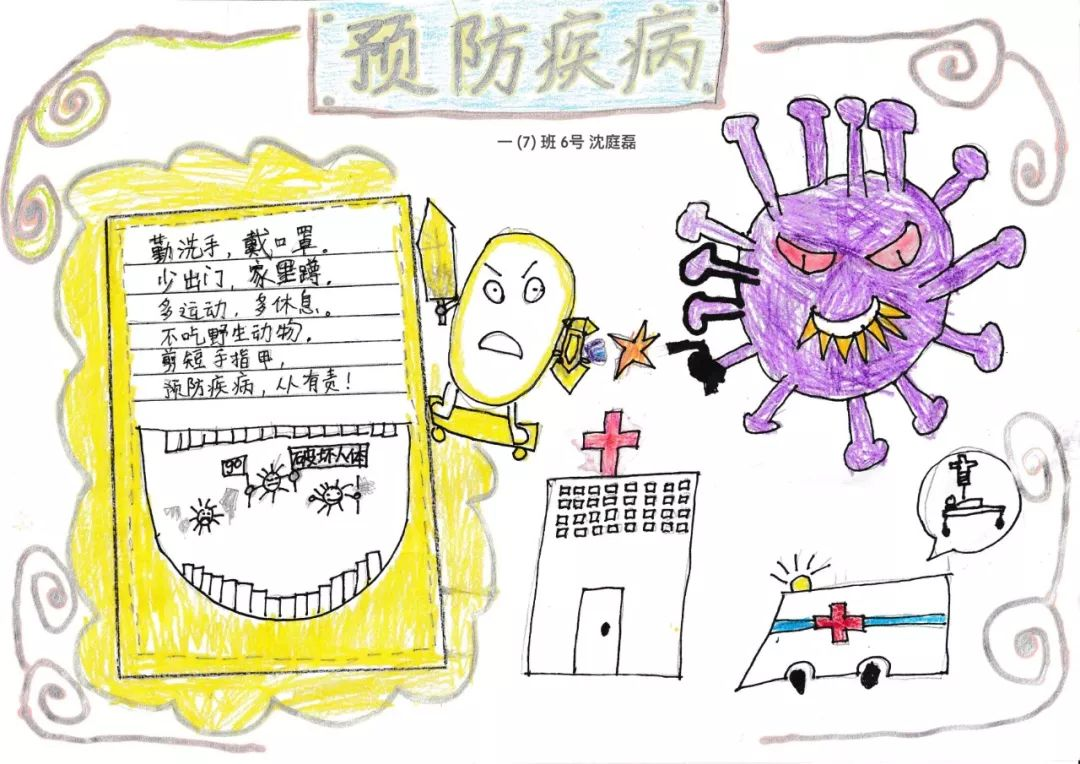 预防疾病
一 (7) 班 6号 沈庭磊
勤洗手，戴口罩。
少出门，家里蹲。
多运动，多休息。
不吃野生动物。
剪短手指甲，
预防疾病，从有责！
go!
破坏人体